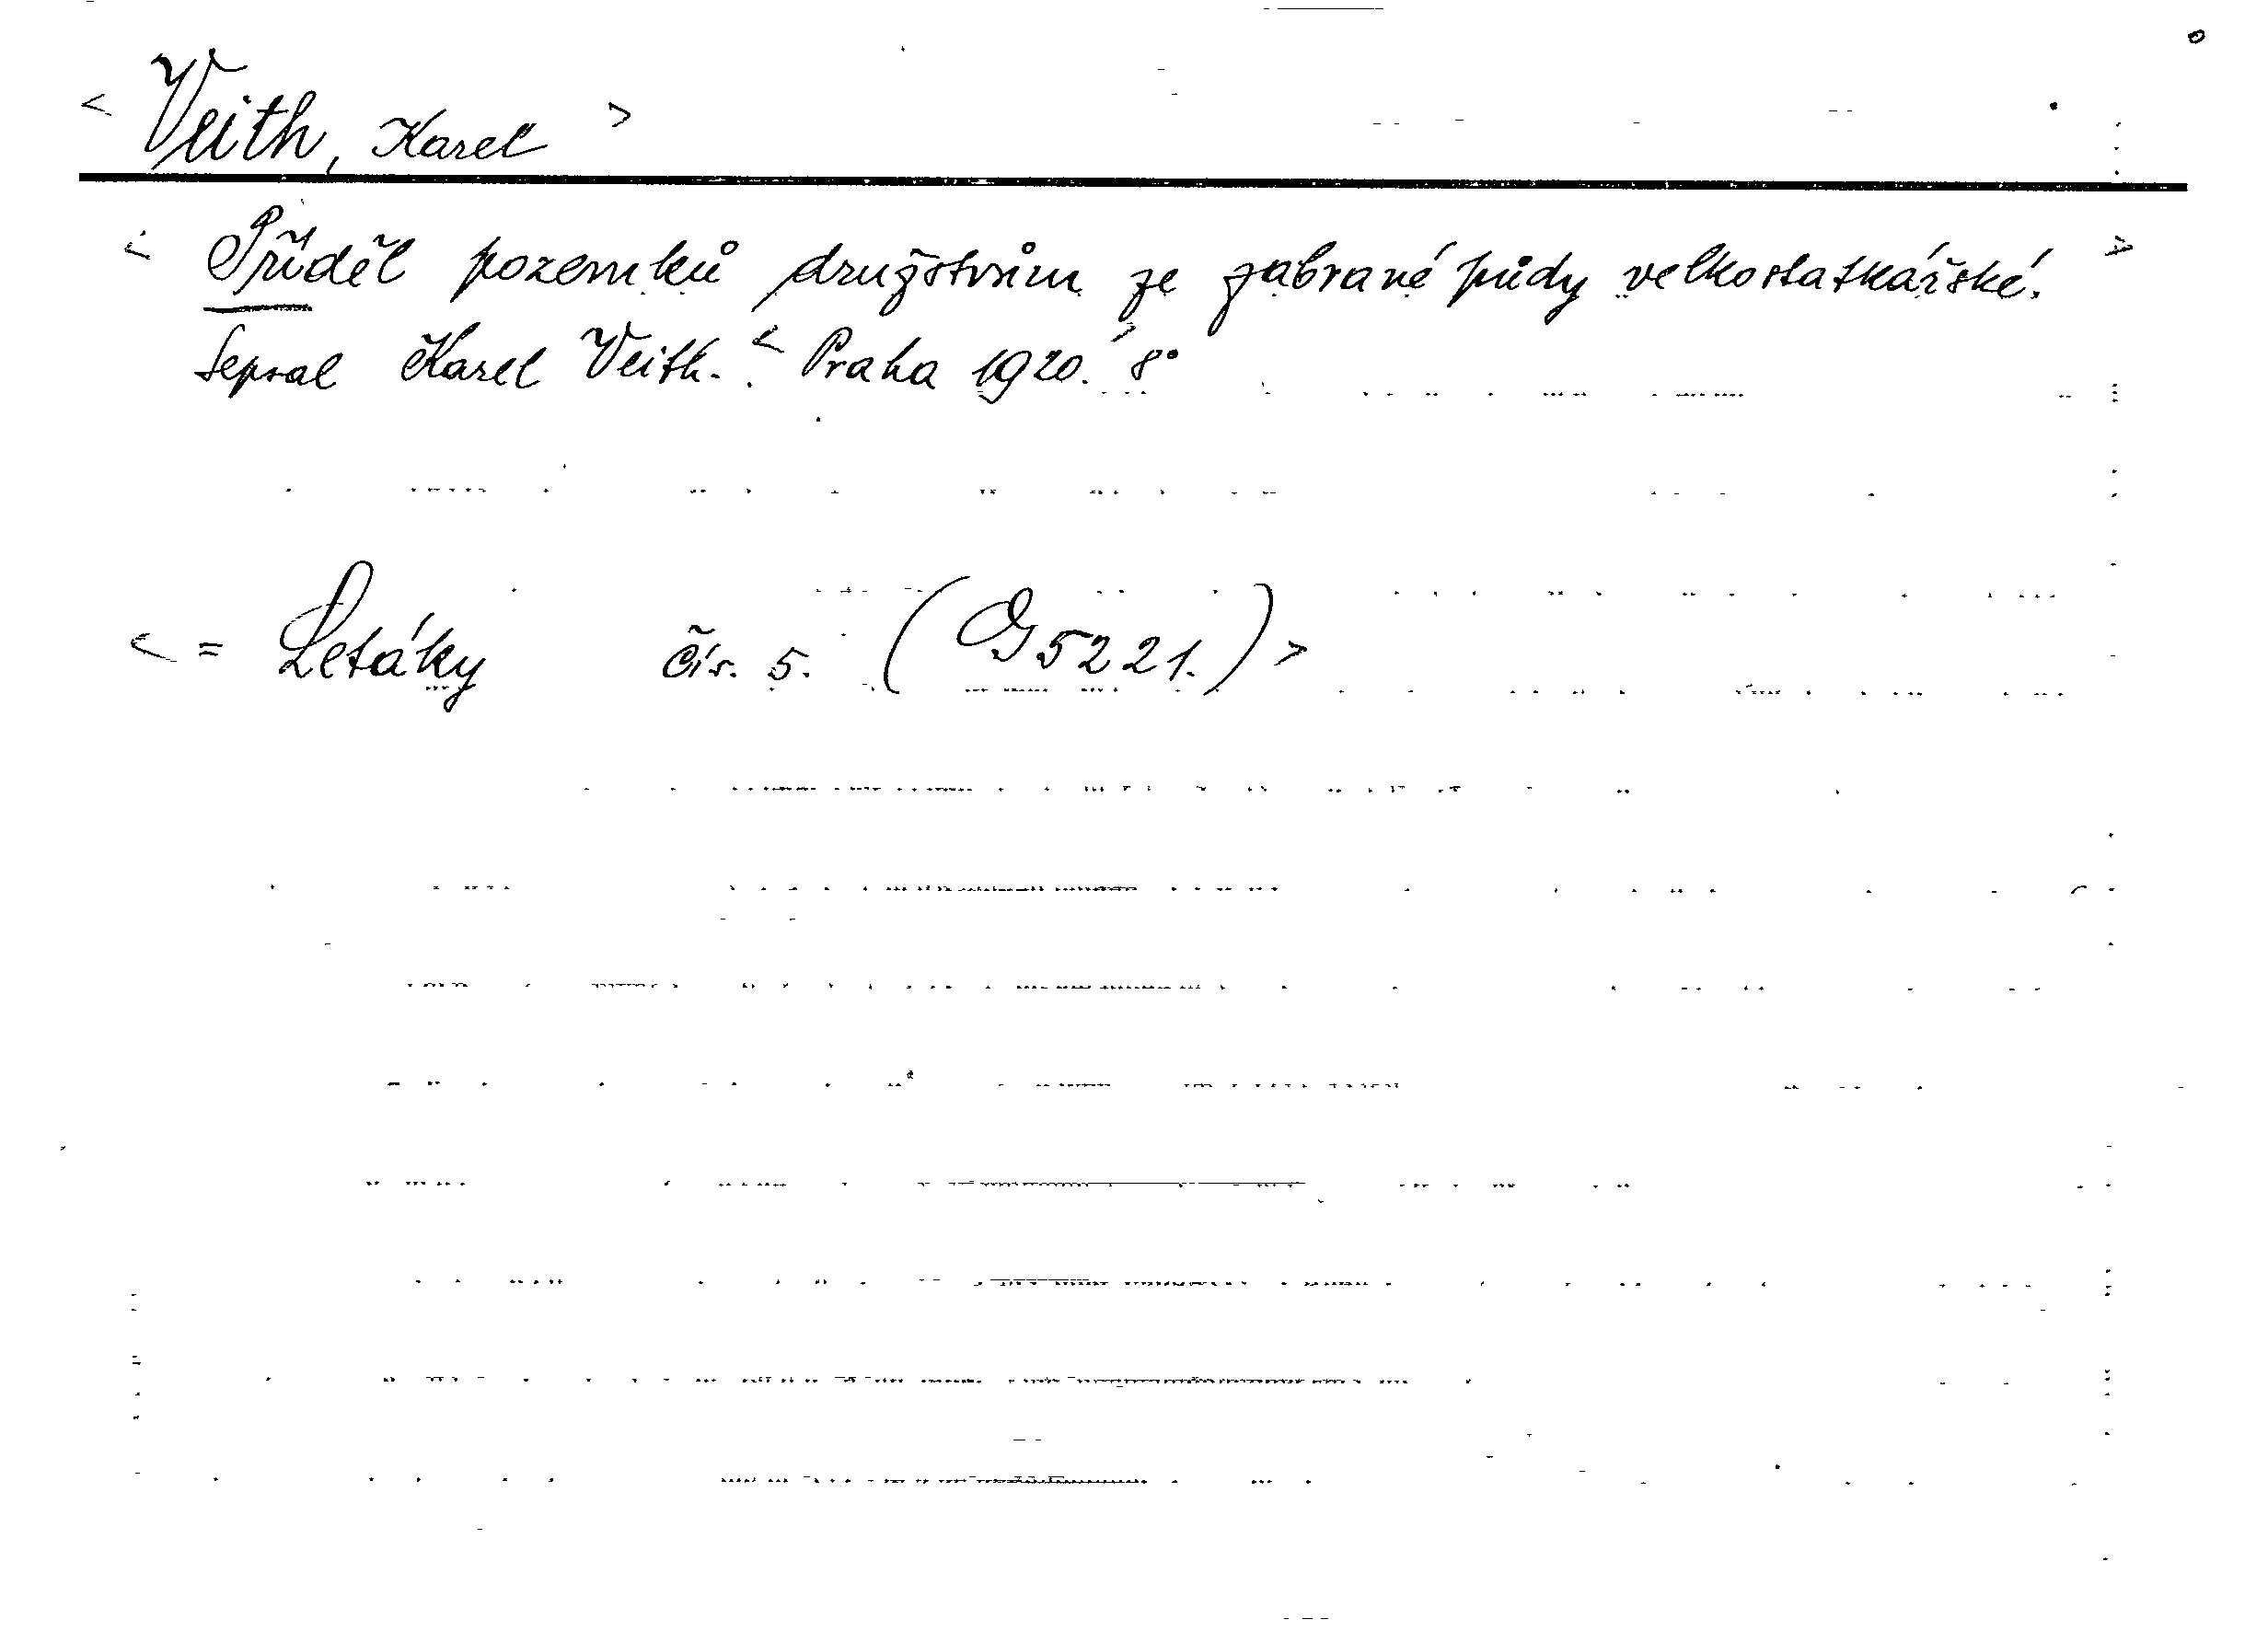 < Veith, Karel >
< Příděl pozemků družstvům ze zabrané půdy velkostatkářské. >
Sepsal Karel Veith. < Praha 1920. > 8°
< = Letáky čís. 5. (G 5221.) >